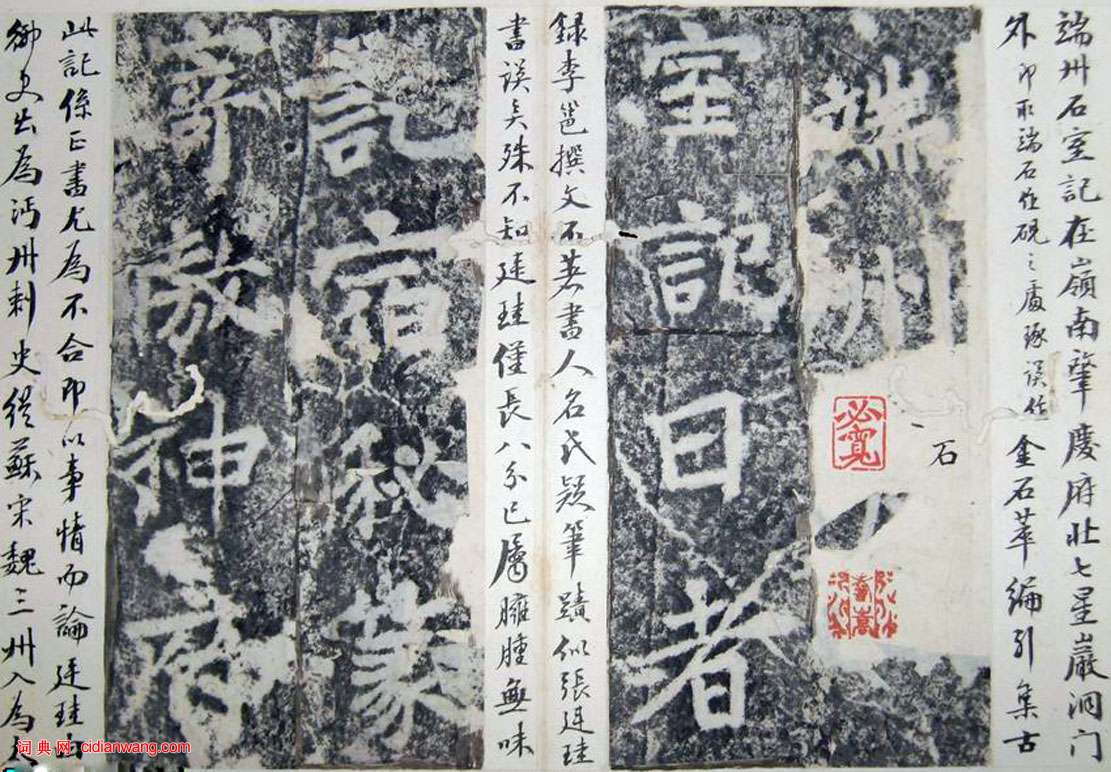 端州石室記在嶺南肇慶府北七星巖洞门
外即取端石作硯之處琢误作金石萃編引集古
端州石
室記日者
録李邕撰文不著書人名氏疑筆蹟似張廷珪
書误矣殊不知廷珪僅長八分已屬臃腫無味
記宿秘篆
奇蔡神商
此記係正書尤為不合即以事情而論廷珪由
御史出為沔州刺史從蘇宋魏三州入為太
必寬
词典网 cidianwang.com